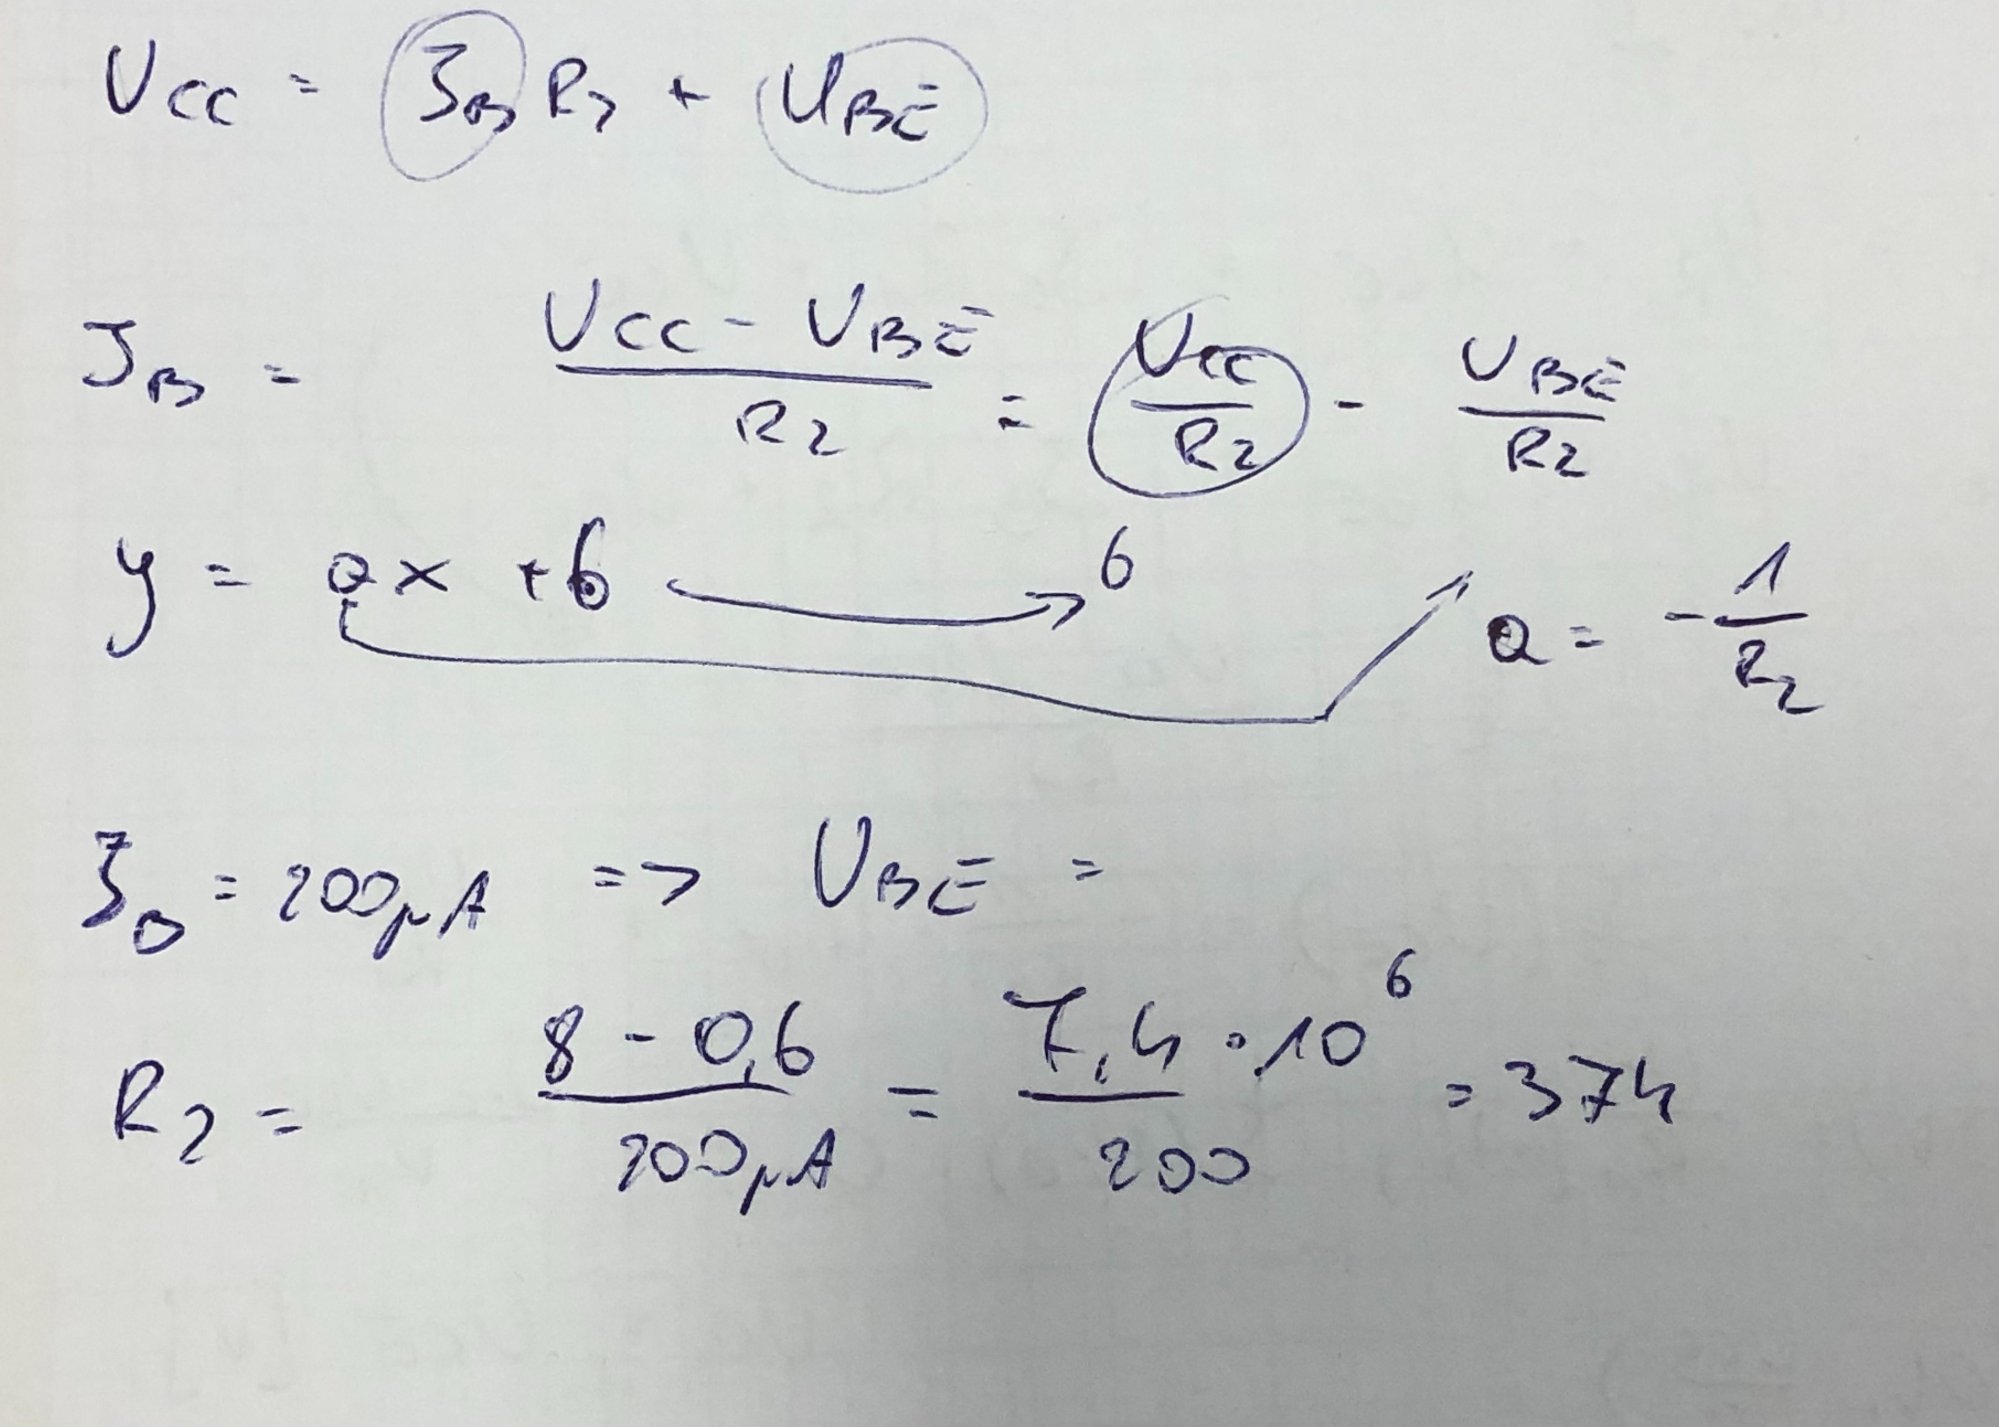 U_CC = I_B R_2 + U_BE
I_B = (U_CC - U_BE) / R_2 = U_CC / R_2 - U_BE / R_2
y = ax + b → b a = - 1 / R_2
I_B = 200μA => U_BE =
R_2 = (8 - 0,6) / 200μA = 7,4 · 10^6 / 200 = 374